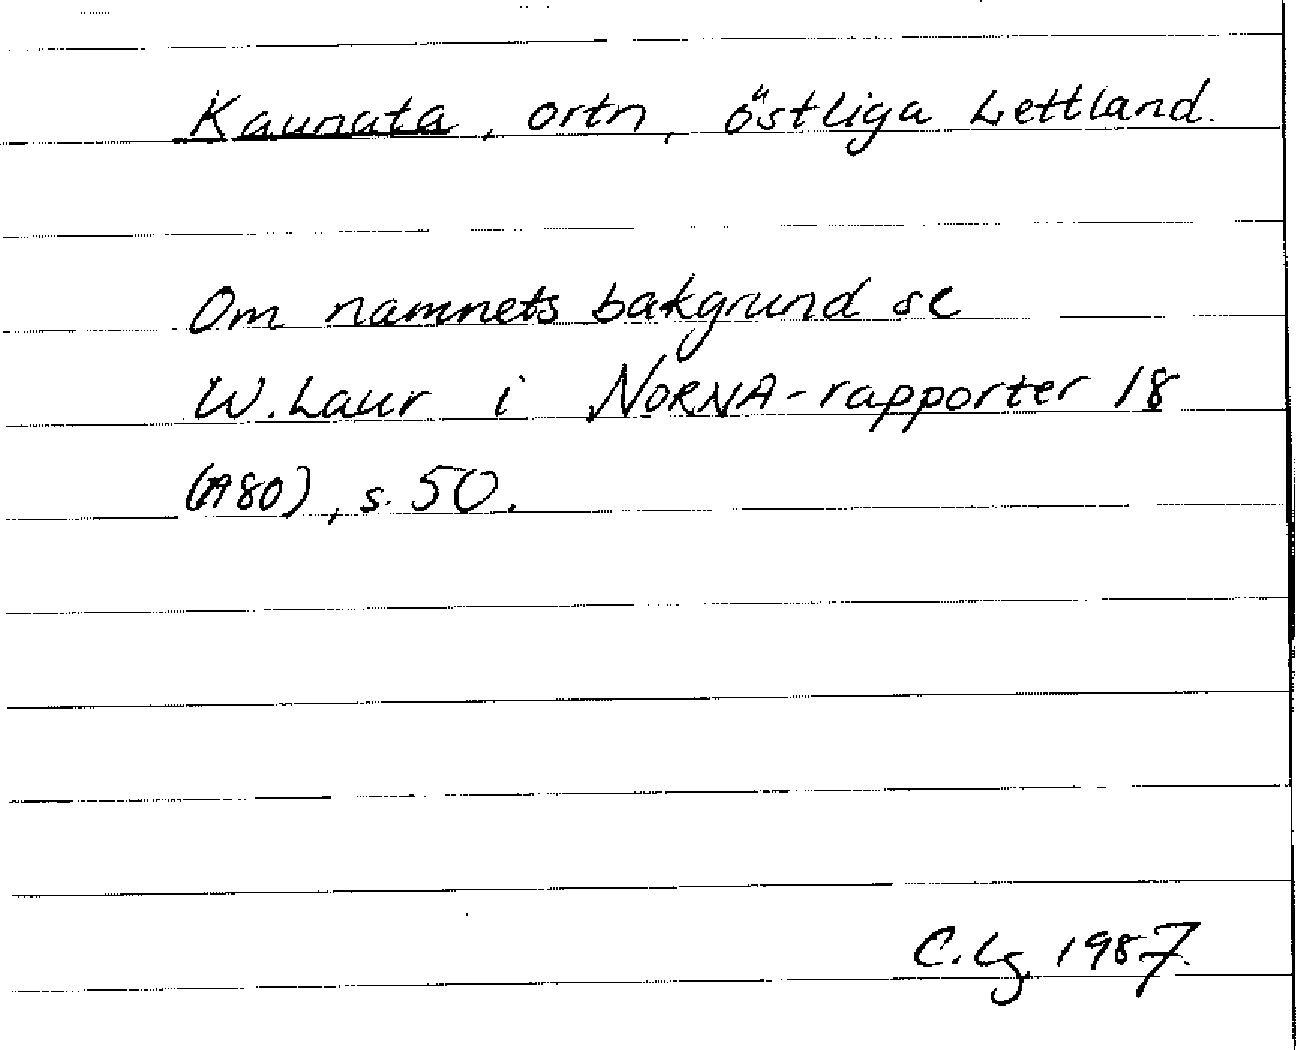 Kaunata, ortn, östliga Lettland.
Om namnets bakgrund se
W. Laur i NORNA-rapporter 18
(1980), s. 50.
C.Lg. 1987.